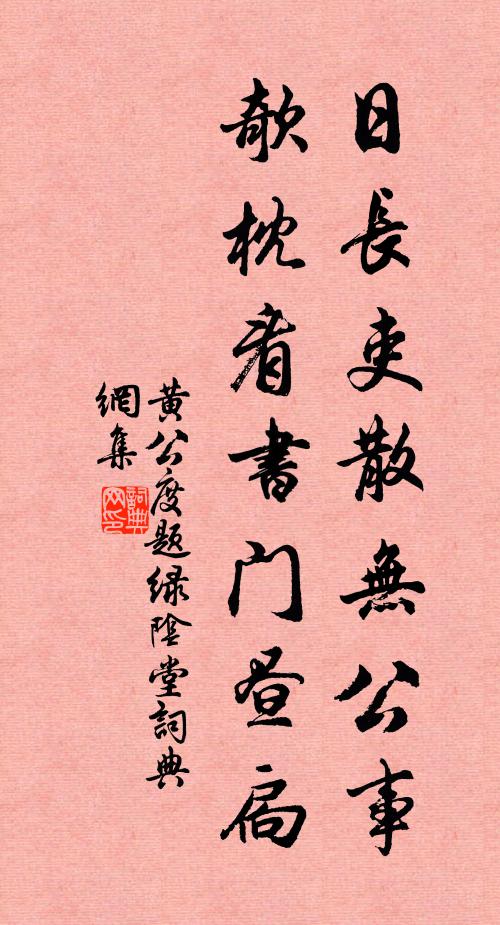 日長吏散無公事
欹枕看書門昼扃
黄公度題緑陰堂詞典
網集
詞典
网印